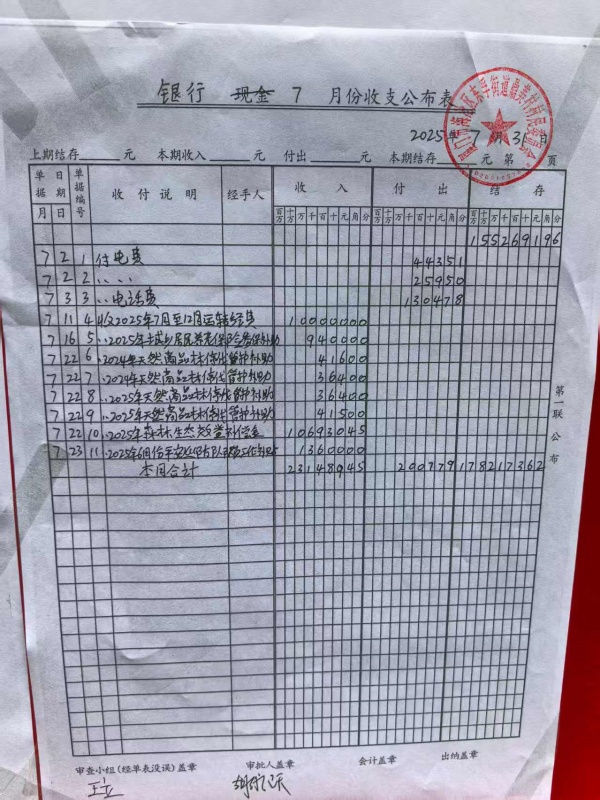 银行 现金 7 月份收支公布表
2025年7月31日
东孚街道鼎美村村民委员会
上期结存 元 本期收入 元 付出 元 本期结存 元 第 页
单据 日期 单据编号 收付说明 经手人 收入 付出 结存
月 日 百万 十万 万 千 百 十 元 角 分 百万 十万 万 千 百 十 元 角 分 百万 十万 万 千 百 十 元 角 分
155269196
7 2 1 付电费 44351
7 2 2 〃 〃 25950
7 3 3 〃电话费 130478
7 11 4 收2025年7月至12月运转经费 10000000
7 16 5 〃2025年城乡居民养老保险参保补助 940000
7 22 6 〃2024年天然商品林停伐管护补助 41600
7 22 7 〃2024年天然商品林停伐管护补助 36400
7 22 8 〃2025年天然商品林停伐管护补助 36400
7 22 9 〃2025年天然商品林停伐管护补助 41500
7 22 10 〃2025年森林生态效益补偿金 10693045
7 23 11 〃2025年6月份平安 1360000
本月合计 23148945 200779 178217362
第一联 公布
审查小组(经单表没误)盖章 审批人盖章 会计盖章 出纳盖章